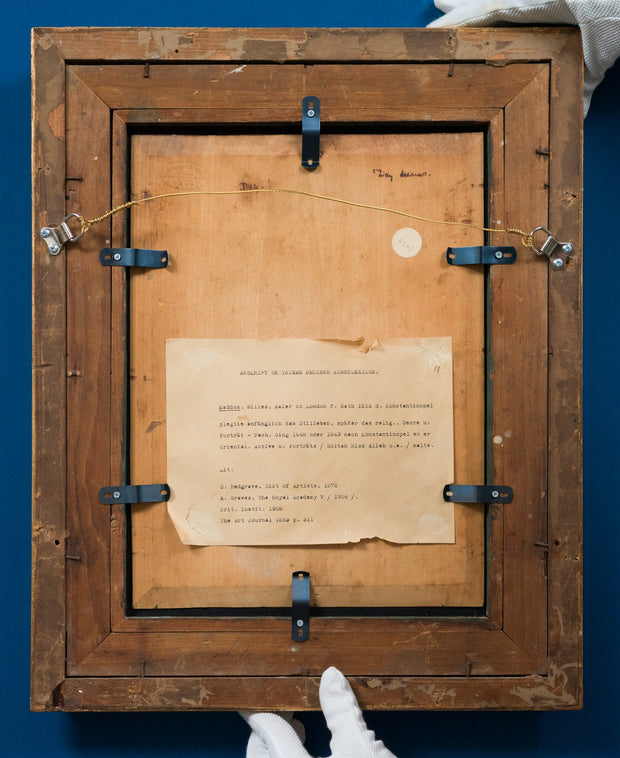 Day dreams.
AVSKRIFT UR THIEME BECKERS KÜNSTLEXIKON.
Maddox, Willes, Maler in London f. Bath 1813 d. Konstantinopel
plegte anfänglich das Stilleben, später das relig., Genre u.
Porträt - Fach. Ging 1848 oder 1849 nach Konstantinopel wo er
oriental. Motive u. Porträts / Sultan Risk Allah u.a. / malte.
Lit.
S. Redgrave, Dict of Artists, 1878
A. Graves, The Royal Academy V / 1906 /.
Brit. Instit. 1908
The Art Journal 1859 p. 311